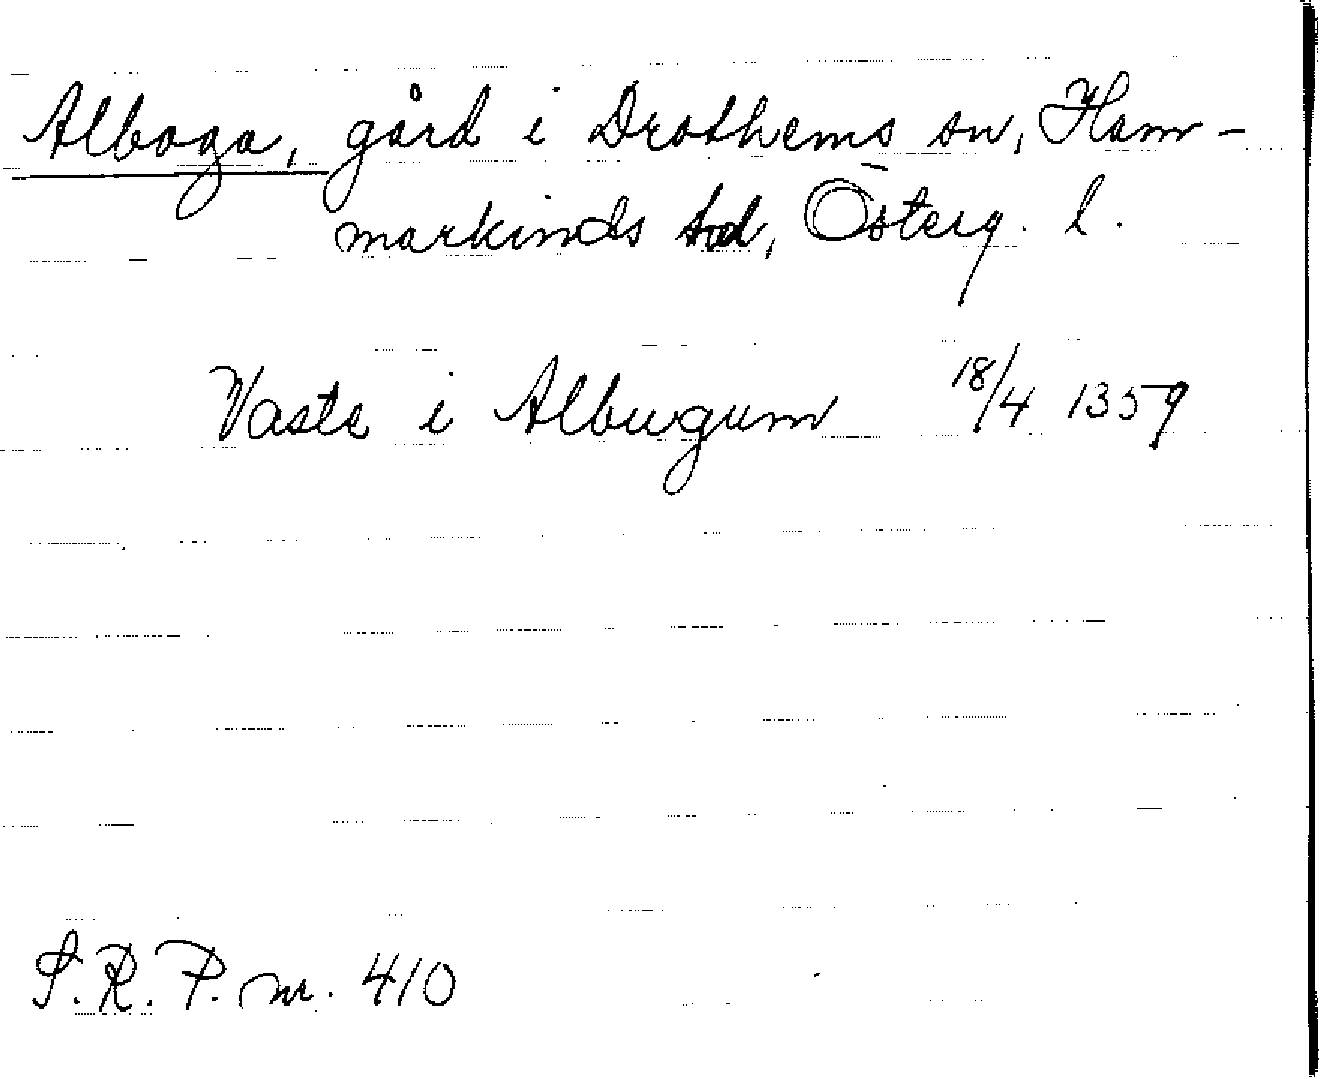 Alboga, gård i Drothems sn, Ham-
markinds hd, Österg. l.
Vaste i Albugum 18/4 1359
S.R.P. nr. 410